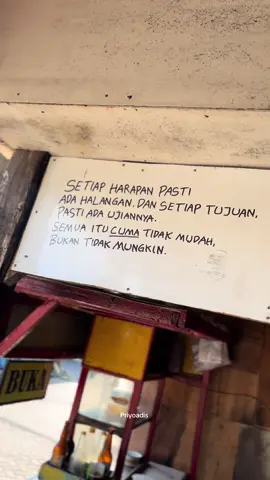 SETIAP HARAPAN PASTI
ADA HALANGAN. DAN SETIAP TUJUAN,
PASTI ADA UJIANNYA.
SEMUA ITU CUMA TIDAK MUDAH,
BUKAN TIDAK MUNGKIN.
BUKA
Priyoadis